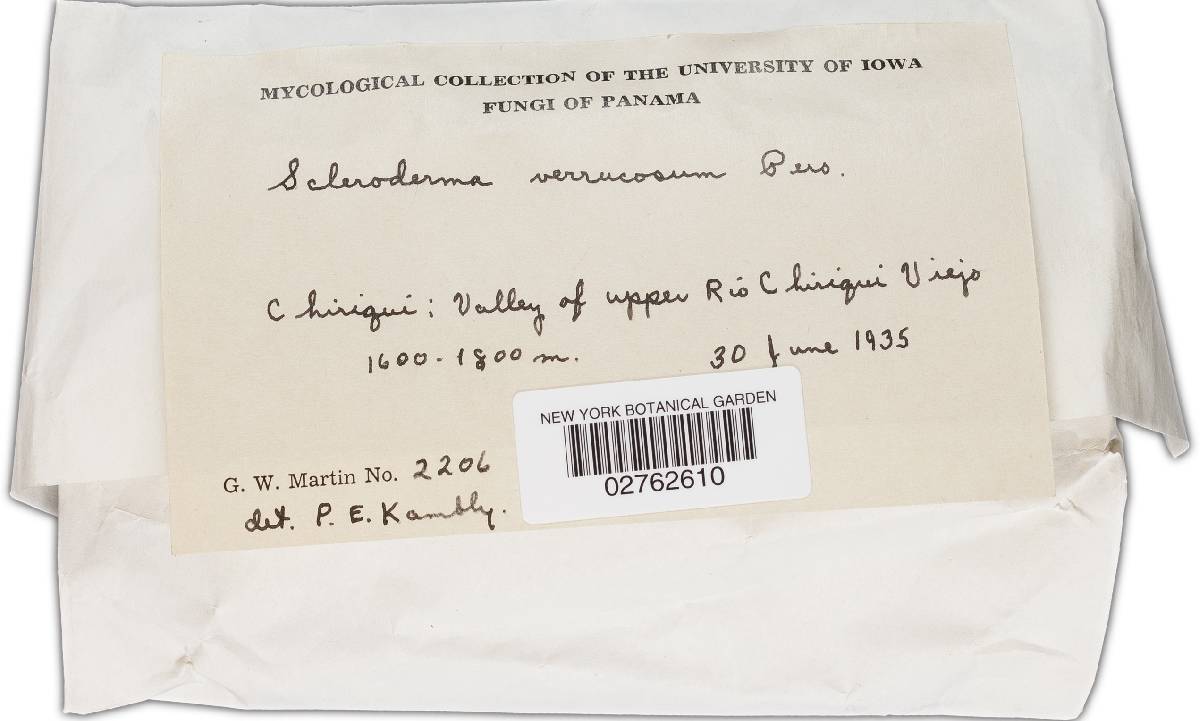 MYCOLOGICAL COLLECTION OF THE UNIVERSITY OF IOWA
FUNGI OF PANAMA
Scleroderma verrucosum Pers.
Chiriqui: Valley of upper Rio Chiriqui Viejo
1600-1800 m. 30 June 1935
NEW YORK BOTANICAL GARDEN
02762610
G. W. Martin No. 2206
det. P. E. Kambly.